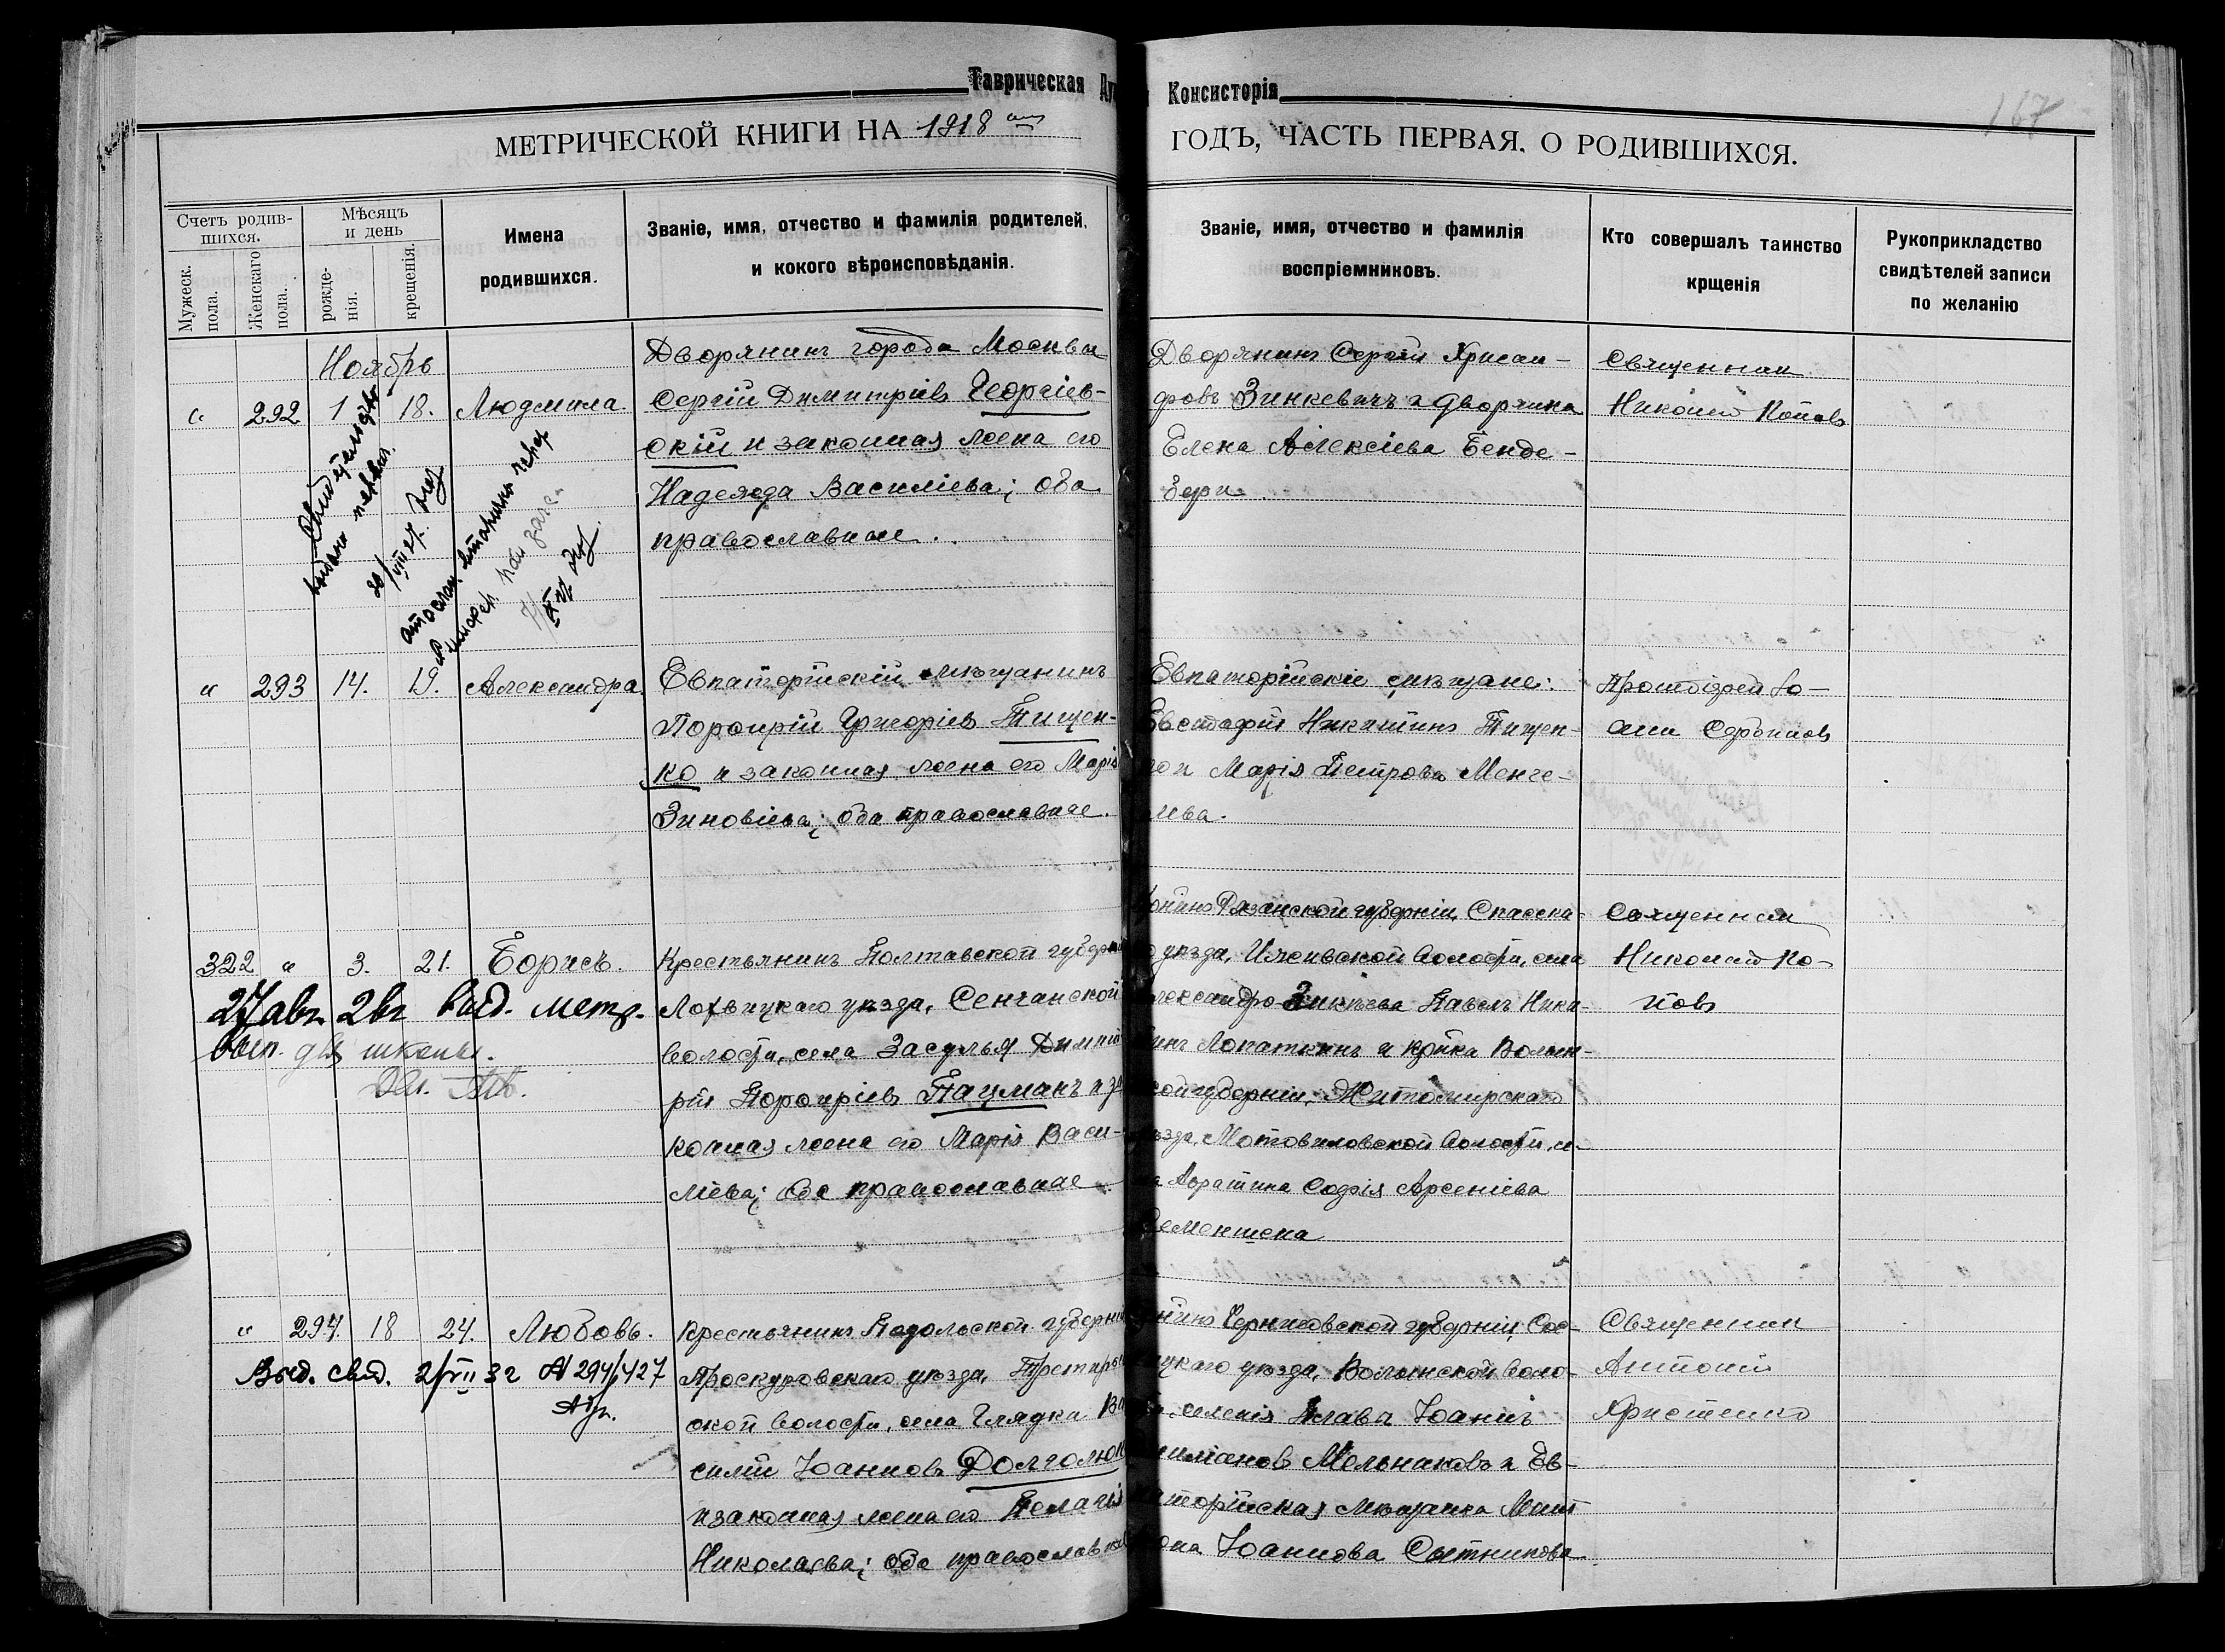 Таврическая
Консисторія
167
МЕТРИЧЕСКОЙ КНИГИ НА 1918
ГОДЪ, ЧАСТЬ ПЕРВАЯ. О РОДИВШИХСЯ.
Счетъ родив-
шихся.
Мужеск.
пола.
Женскаго
пола.
Мѣсяцъ
и день
рожде-
нія.
крещенія.
Имена
родившихся.
Званіе, имя, отчество и фамилія родителей,
и кокого вѣроисповѣданія.
Званіе, имя, отчество и фамилія
воспріемниковъ.
Кто совершалъ таинство
крщенія
Рукоприкладство
свидѣтелей записи
по желанію
Ноябрь
" 292 1 18. Людмила.
Дворянинъ города Москвы
Сергій Димитріевъ Георгіев-
скій и законная жена его
Надежда Василіева; оба
православные.
Дворянинъ Сергій
фовъ Зинкевичъ и дворянка
Елена Алексіева Бенде-
бери
Священник
Николай Поповъ
Свидѣтельство
выдано
" 293 14. 19. Александра.
Евпаторійскій мѣщанинъ
Порфирій Григоріевъ Тищен-
ко и законная жена его Марія
Зиновіева; оба православные.
Евпаторійскіе мѣщане:
Евстафій Никитинъ Тищен-
ко и Марія Петрова Менге-
лева.
Протоіерей Іо-
анн Сербиновъ
322 " 3. 21. Борисъ.
27 авг. 2 г. выд. метр.
вып. для школы.
Крестьянинъ Полтавской губерніи
Лохвицкаго уѣзда, Сенчанской
волости, села Засулья Димит
рій Порфиріевъ Пацманъ и за
конная жена его Марія Васи-
ліева; оба православные
Рязанской губерніи, Спасска-
го уѣзда, Ижевской волости, села
Александро- Павелъ Ники-
Лопаткинъ и кр-нка Волын-
ской губерніи, Житомирскаго
уѣзда, Мотовиловской волости, се-
ла Авратина Софія Арсеніева
Священник
Николай По-
повъ
" 294. 18 24. Любовь.
Выд. свид. 2/VII 32 № 294/427
Крестьянинъ Подольской губерніи
Проскуровскаго уѣзда,
ской волости, села Глядки Ва
силій Іоанновъ Долголюк
и законная жена его Пелагія
Николаева; оба православные
Черниговской губерніи, Сос-
ницкаго уѣзда, Волынской воло-
сти, селенія Іоаннъ
Мельниковъ и Ев-
паторійская мѣщанка
Іоаннова Сытникова
Священник
Антоній
Христенко